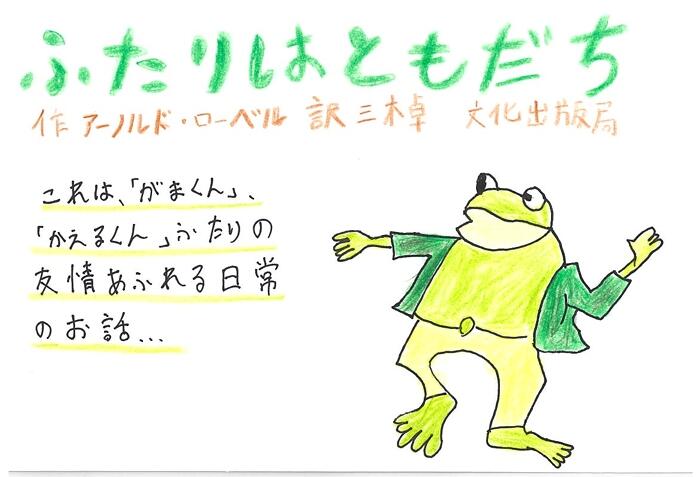 ふたりはともだち
作 アーノルド・ローベル 訳 三木卓 文化出版局
これは、「がまくん」、
「かえるくん」ふたりの
友情あふれる日常
のお話...